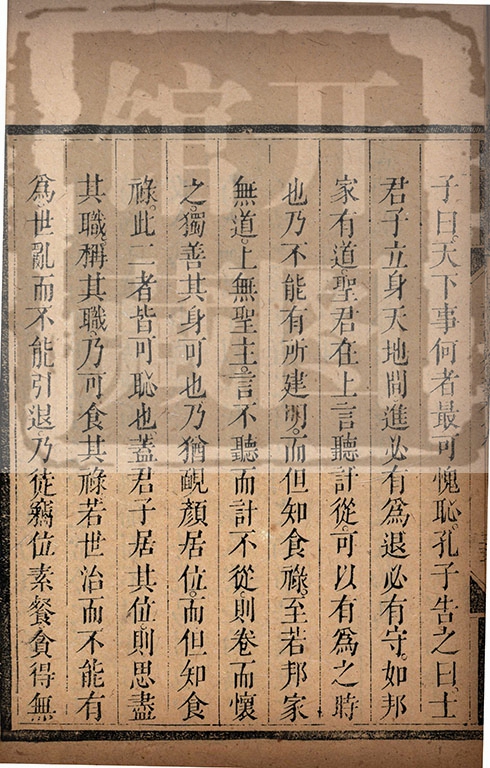 子曰天下事何者最可愧恥孔子告之曰士
君子立身天地間進必有爲退必有守如邦
家有道聖君在上言聽計從可以有爲之時
也乃不能有所建明而但知食祿至若邦家
無道上無聖主言不聽而計不從則卷而懷
之獨善其身可也乃猶靦顏居位而但知食
祿此二者皆可恥也蓋君子居其位則思盡
其職稱其職乃可食其祿若世治而不能有
爲世亂而不能引退乃徒竊位素餐貪得無